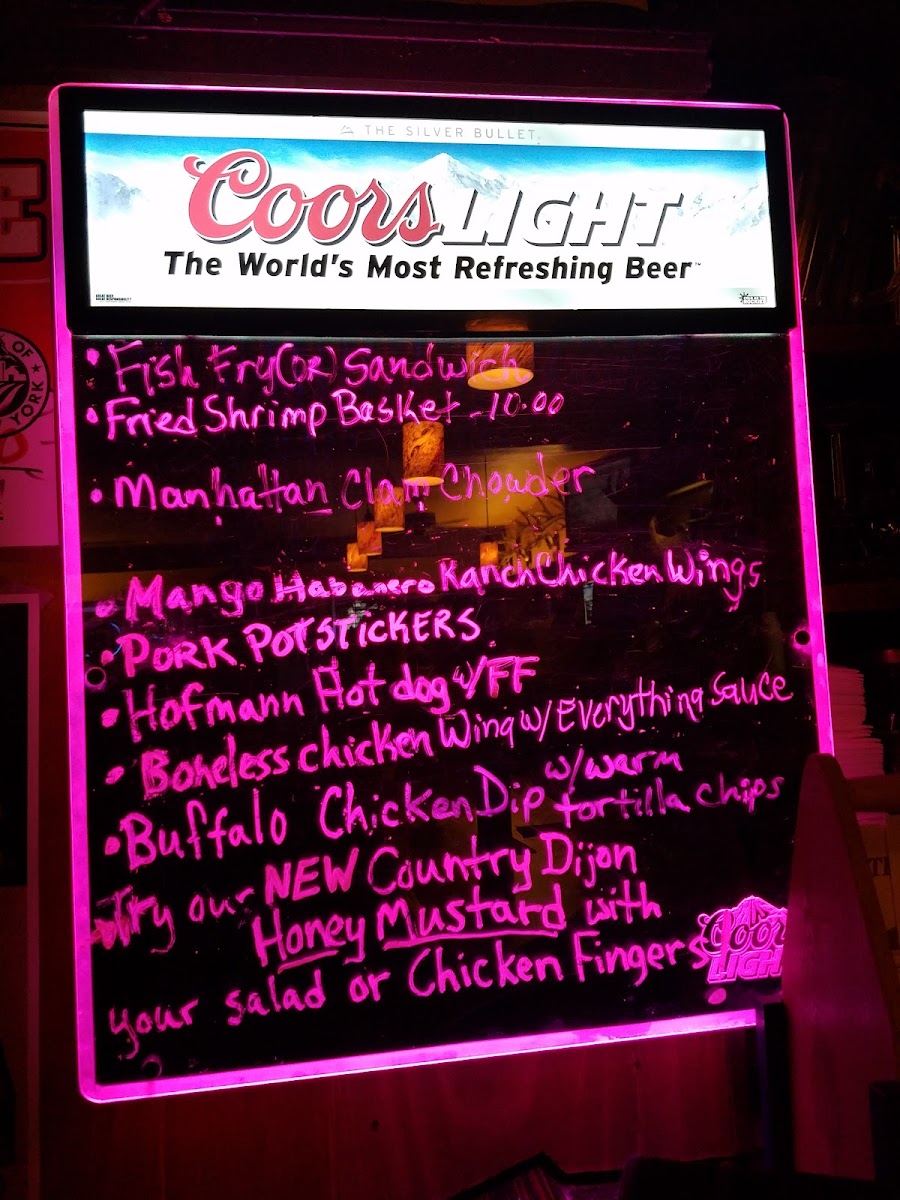 THE SILVER BULLET.
Coors LIGHT
The World's Most Refreshing Beer™
• Fish Fry (or) Sandwich
• Fried Shrimp Basket - 10.00
• Manhattan Clam Chowder
• Mango Habanero Ranch Chicken Wings
• PORK POTSTICKERS
• Hofmann Hot dog w/FF
• Boneless chicken Wing w/ Everything Sauce
• Buffalo Chicken Dip w/warm
tortilla chips
Try our NEW Country Dijon
Honey Mustard with
your salad or Chicken Fingers
Coors
LIGHT
E
OF
YORK